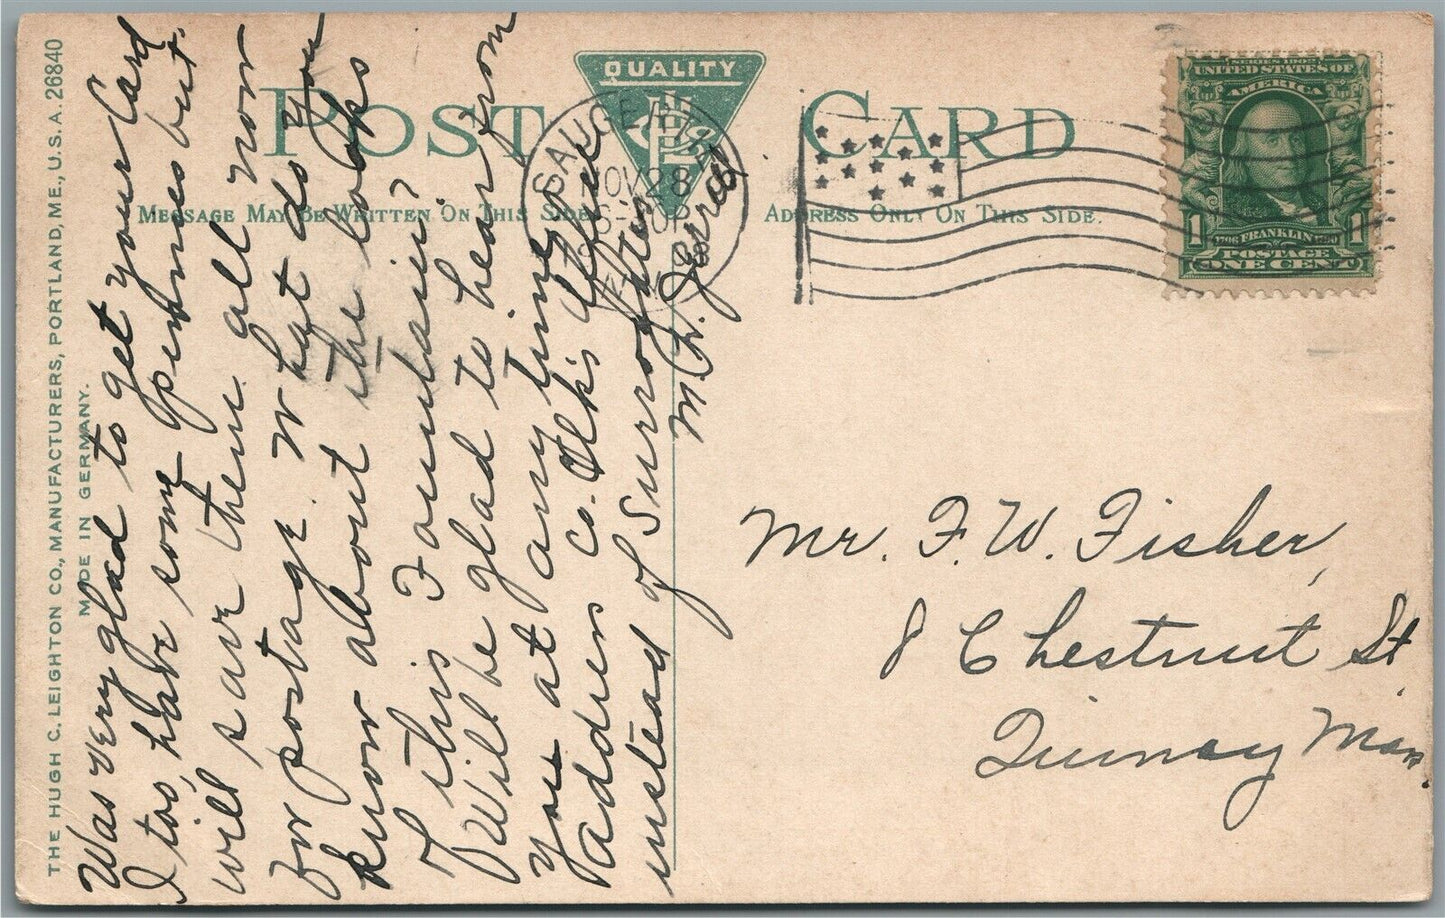 THE HUGH C. LEIGHTON CO., MANUFACTURERS, PORTLAND, ME., U.S.A. 26840
MADE IN GERMANY.
POST CARD
QUALITY
MESSAGE MAY BE WRITTEN ON THIS SIDE
ADDRESS ONLY ON THIS SIDE.
NOV 28
SERIES 1902
UNITED STATES OF
AMERICA
1 1
1706 FRANKLIN 1790
POSTAGE
ONE CENT
Was very glad to get your Card
I too, have some pennies but
will save them all now
for postage. What do you
know about the looks
of this Fountain?
Will be glad to hear from
you at any time
Address Co. Clk's Office
instead of Surrogates
Mr. F. W. Fisher,
8 Chestnut St
Quincy Mass.